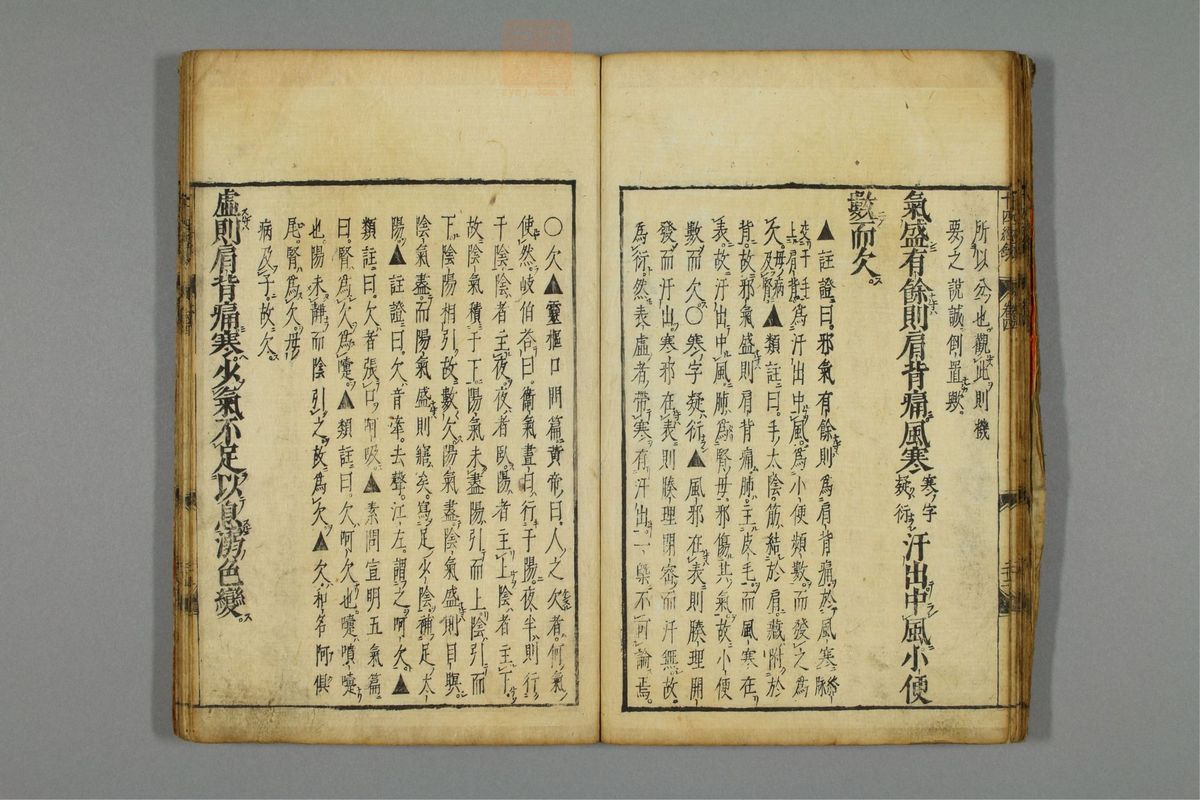 所以分也觀此則機
要之說誠倒置與
氣盛有餘則肩背痛風寒寒字疑衍汗出中風小便
數而欠
▲註證曰邪氣有餘則爲肩背痛於風寒
上肩背爲汗出中風爲小便頻數而發之爲
欠及腎▲類註曰手太陰筋結於肩藏附於
背故邪氣盛則肩背痛肺主皮毛而風寒在
表故汗出中風肺爲腎母邪傷其氣故小便
數而欠○寒字疑衍▲風邪在表則腠理開
發而汗出寒邪在表則腠理閉密而汗無故
爲衍然表虛者帶寒有汗出一槩不可論焉
○欠▲靈樞口問篇黃帝曰人之欠者何氣
使然岐伯答曰衞氣晝日行于陽夜半則行
于陰陰者主夜夜者臥陽者主上陰者主下
故陰氣積于下陽氣未盡陽引而上陰引而
下陰陽相引故數欠陽氣盡陰氣盛則目瞑
陰氣盡而陽氣盛則寤矣寫足少陰補足太
陽▲註證曰欠音㳍去聲江左謂之呵欠▲
類註曰欠者張口呵吸▲素問宣明五氣篇
曰腎爲欠爲嚏▲類註曰欠呵欠也嚏噴嚏
也陽未靜而陰引之故爲欠▲欠和名阿倶
尾腎爲欠母
病及子故欠
虛則肩背痛寒少氣不足以息溺色變